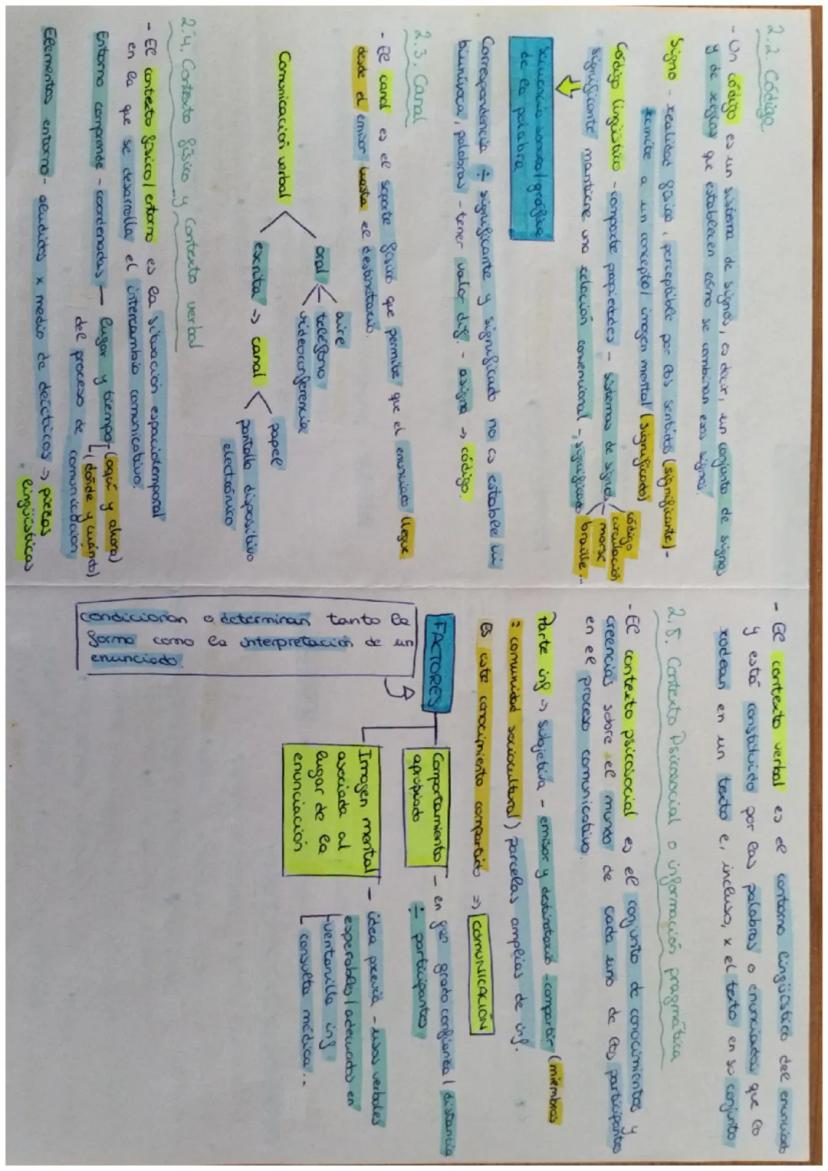 2.2. Código
- Un código es un sistema de signos, es decir, un conjunto de signos
y de reglas que establecen cómo se combinan esos signos.
Signo - realidad física, perceptible por los sentidos (significante) -
remite a un concepto/imagen mental (significado)
Código lingüístico - comparte propiedades - sistemas de signos
código circulación
morse
braille..
significante mantiene una relación convencional - significado
secuencia sonora/gráfica
de la palabra
Correspondencia ÷ significante y significado no es estable ni
biunívoca, palabras - tener valor dif. - asigna -> código.
2.3. Canal
- El canal es el soporte físico que permite que el enunciado llegue
desde el emisor hasta el destinatario.
Comunicación verbal
oral
aire
teléfono
videoconferencia
escrita => canal
papel
pantalla dispositivo
electrónico
2.4. Contexto físico y Contexto verbal
- El contexto físico/entorno es la situación espaciotemporal
en la que se desarrolla el intercambio comunicativo.
Entorno comprende - coordenadas - lugar y tiempo (aquí y ahora)
(dónde y cuándo)
del proceso de comunicación
Elementos entorno - aludidos x medio de deícticos -> piezas
lingüísticas
- El contexto verbal es el contorno lingüístico del enunciado
y está constituido por las palabras o enunciados que lo
rodean en un texto e, incluso, x el texto en su conjunto
2.5. Contexto Psicosocial o información pragmática
- El contexto psicosocial es el conjunto de conocimientos y
creencias sobre el mundo de cada uno de los participantes
en el proceso comunicativo.
Parte inf => subjetiva - emisor y destinatario - compartir (miembros
= comunidad sociocultural) parcelas amplias de inf.
es este conocimiento compartido => COMUNICACIÓN
FACTORES
condicionan o determinan tanto la
forma como la interpretación de un
enunciado.
Comportamiento
apropiado
- en grado confianza/distancia
÷ participantes
Imagen mental
asociada al
lugar de la
enunciación
- idea previa - usos verbales
esperables/adecuados en
ventanilla inf
consulta médica..